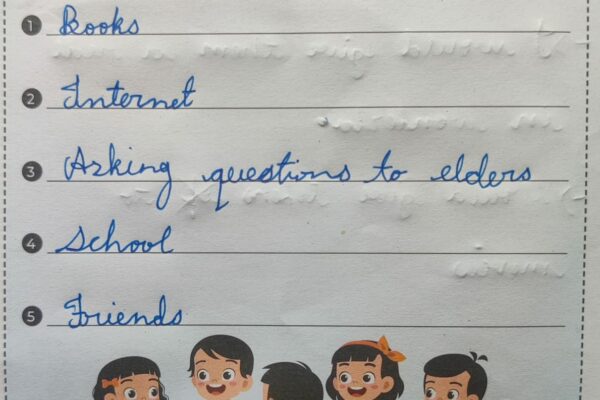 1 Books
2 Internet
3 Asking questions to elders
4 School
5 Friends